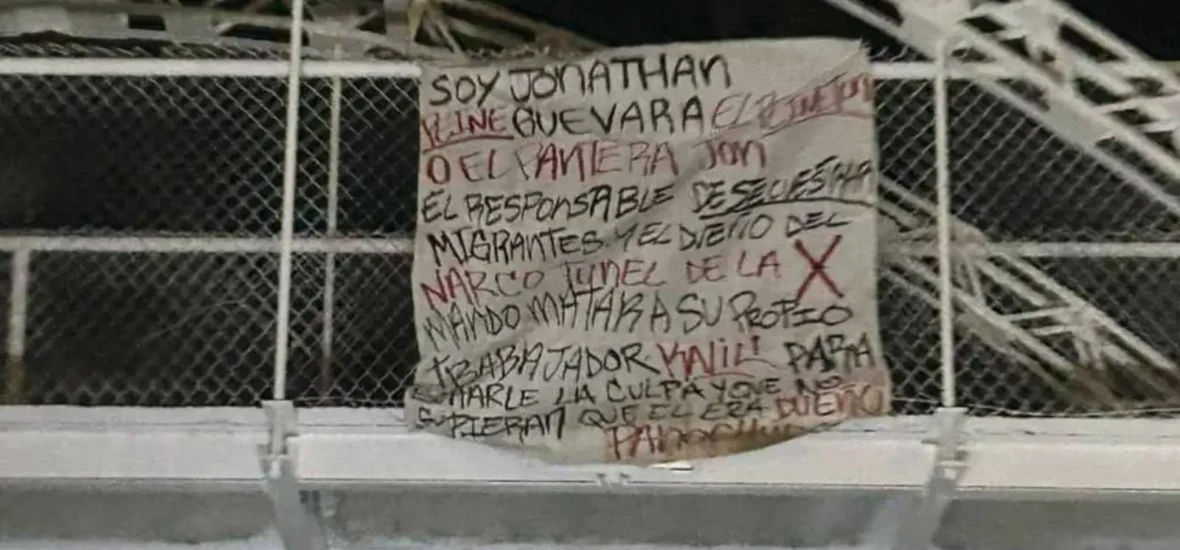 SOY JONATHAN
GUEVARA EL
O EL PANTERA JON
EL RESPONSABLE DE SECUESTRAR
MIGRANTES. Y EL DUEÑO DEL
NARCO TUNEL DE LA X
MANDO MATAR A SU PROPIO
TRABAJADOR KALIL PARA
LA CULPA Y QUE NO
SUPIERAN QUE EL ERA DUEÑO